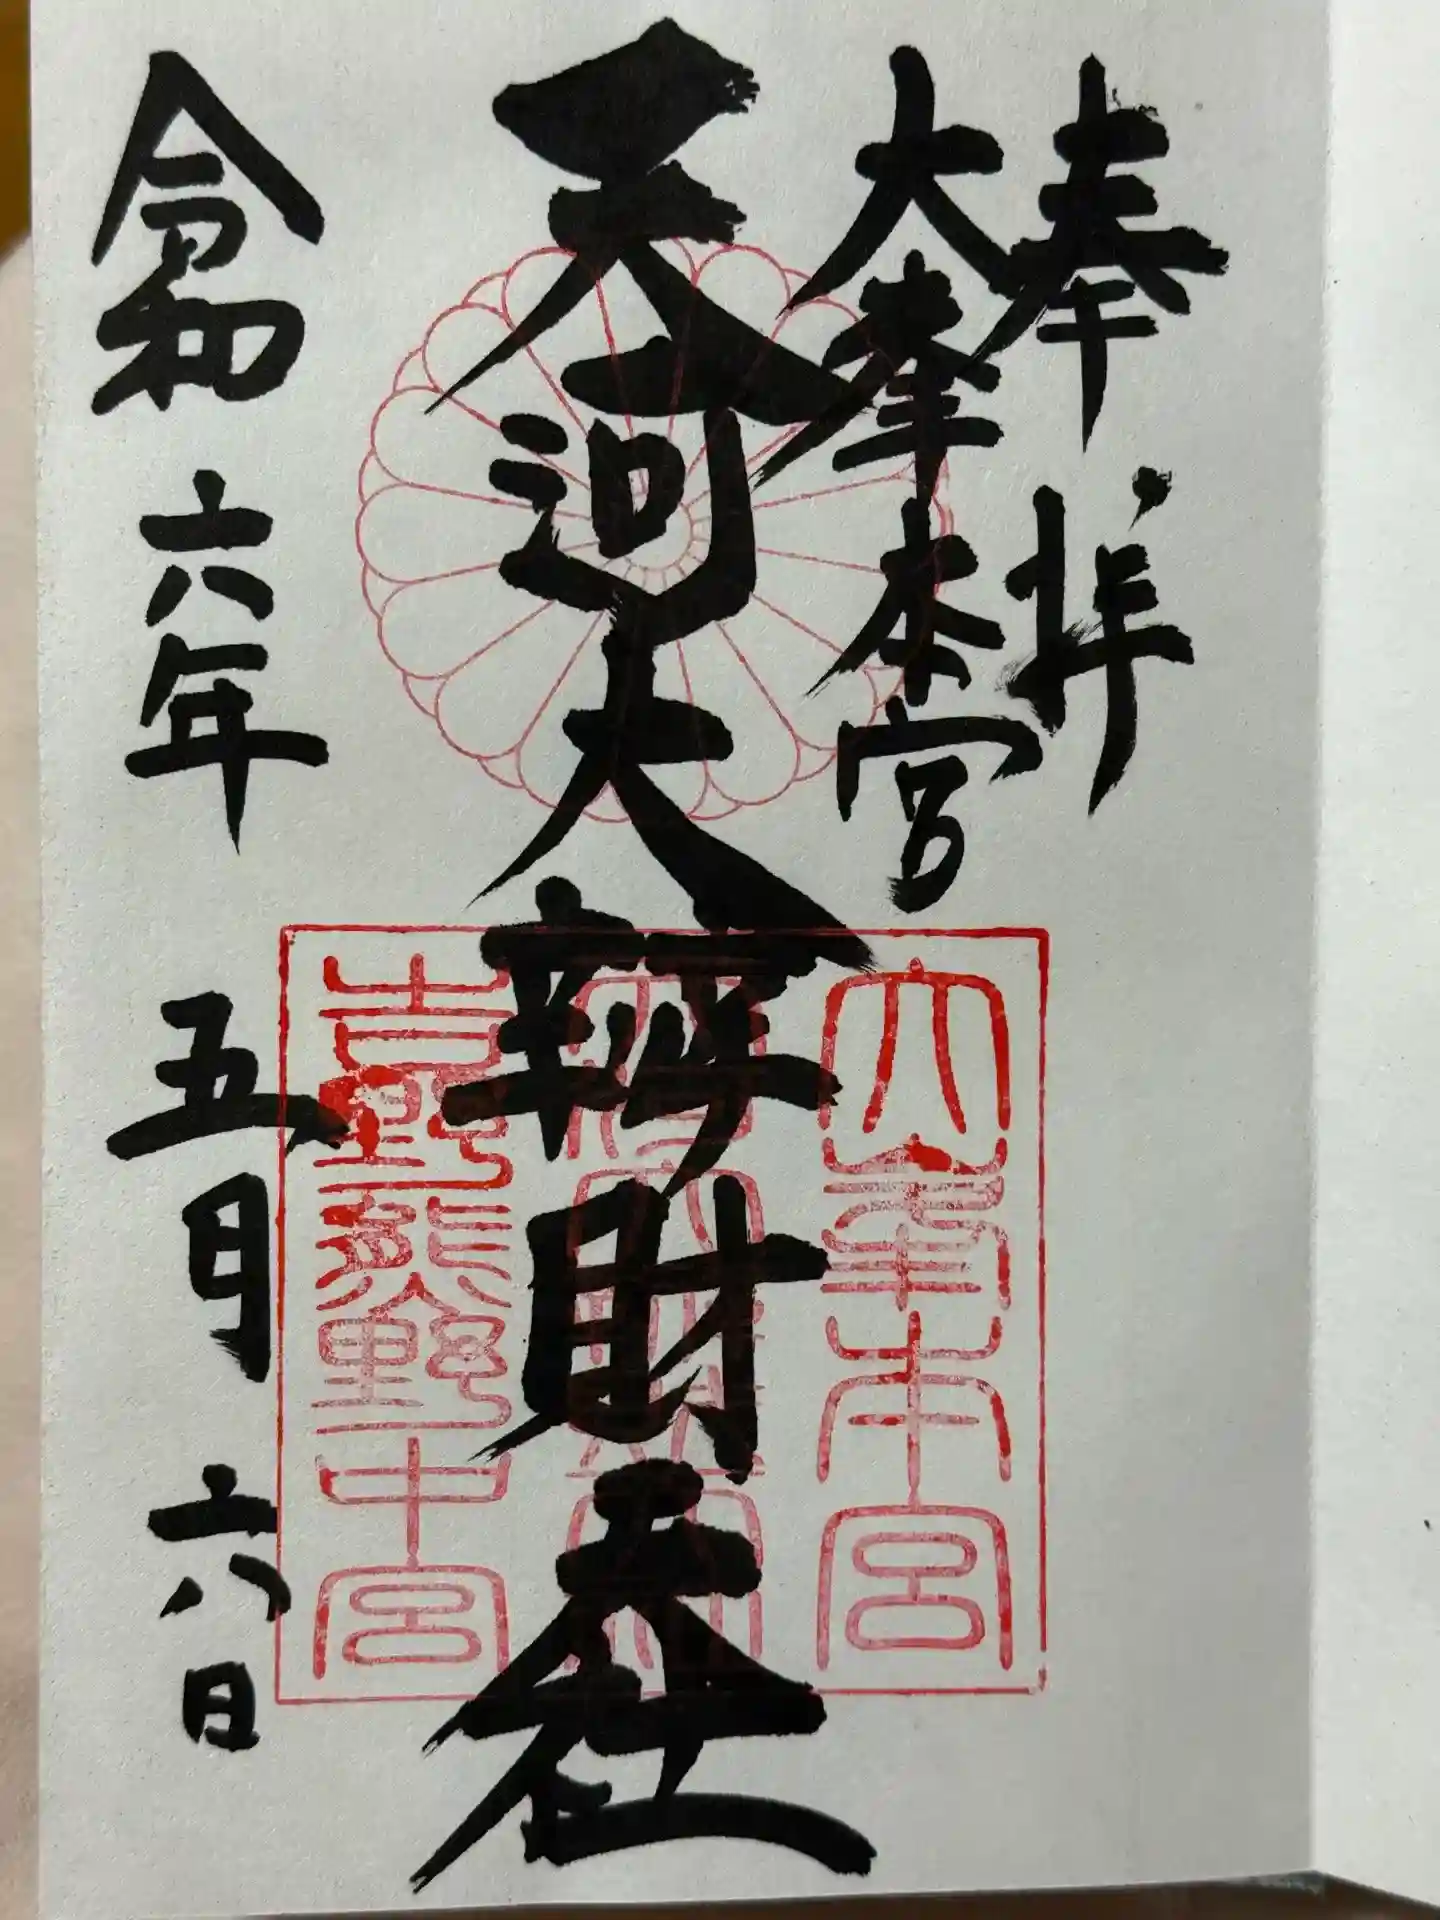 奉拝
大峯本宮
天河大辨財天社
令和六年五月六日
大峯本宮
吉野熊野中宮